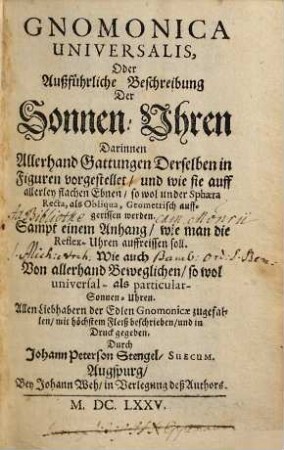 GNOMONICA
UNIVERSALIS,
Oder
Außführliche Beschreibung
Der
Sonnen-Uhren
Darinnen
Allerhand Gattungen Derselben in
Figuren vorgestellet / und wie sie auff
allerley flachen Ebnen / so wol under Sphæra
Recta, als Obliqua, Geometrisch auff-
gerissen werden.
Sampt einem Anhang / wie man die
Reflex-Uhren auffreissen soll.
Wie auch
Von allerhand Beweglichen / so wol
universal- als particular-
Sonnen-Uhren.
Allen Liebhabern der Edlen Gnomonicæ zugefal-
len / mit höchstem Fleiß beschrieben / und in
Druck gegeben.
Durch
Johann Peterson Stengel / SUECUM.
Augspurg /
Bey Johann Weh / in Verlegung deß Authors.
M. DC. LXXV.